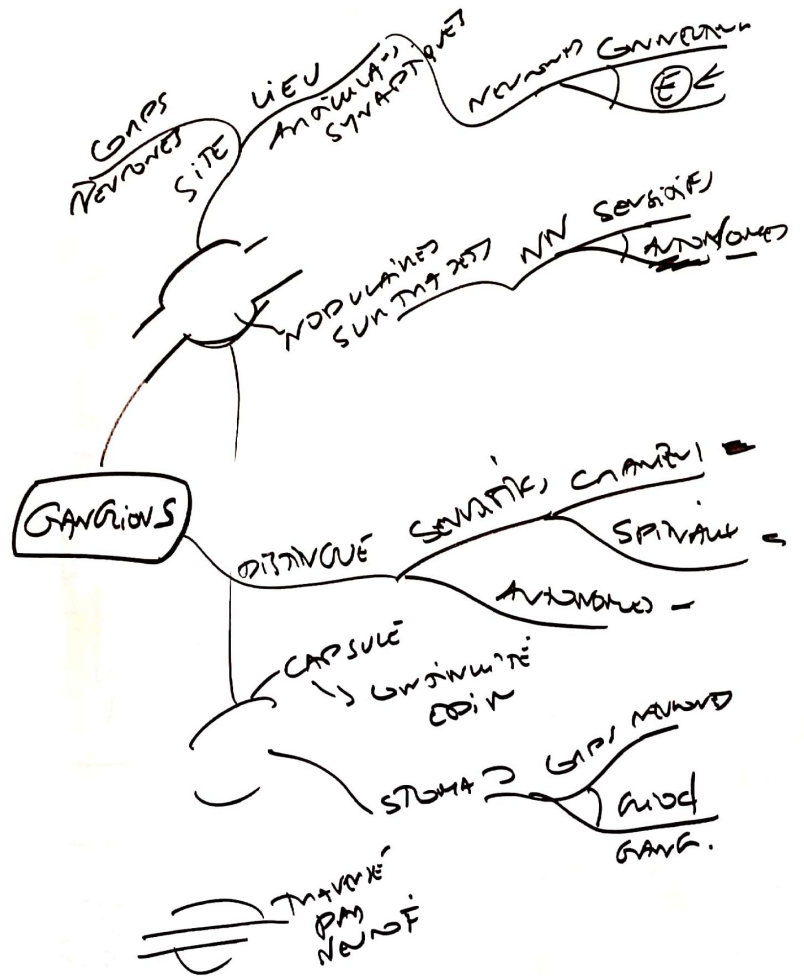 CORPS
NEURONES
SITE
LIEU
ARTICULA-S
SYNAPTIQUES
NEURONES CONNECTEUR
E <
NODULAIRES
SUR TRAJETS
NN SENSITIFS
AUTONOMES
GANGLIONS
DISTINGUE
SENSITIFS
CRANIENS
SPINAUX
AUTONOMES
CAPSULE
CONTINUITÉ
EPIN
STROMA
CORPS NEURONES
GLIOC
GANG.
TRAVERSÉ
PAR
NEUROF